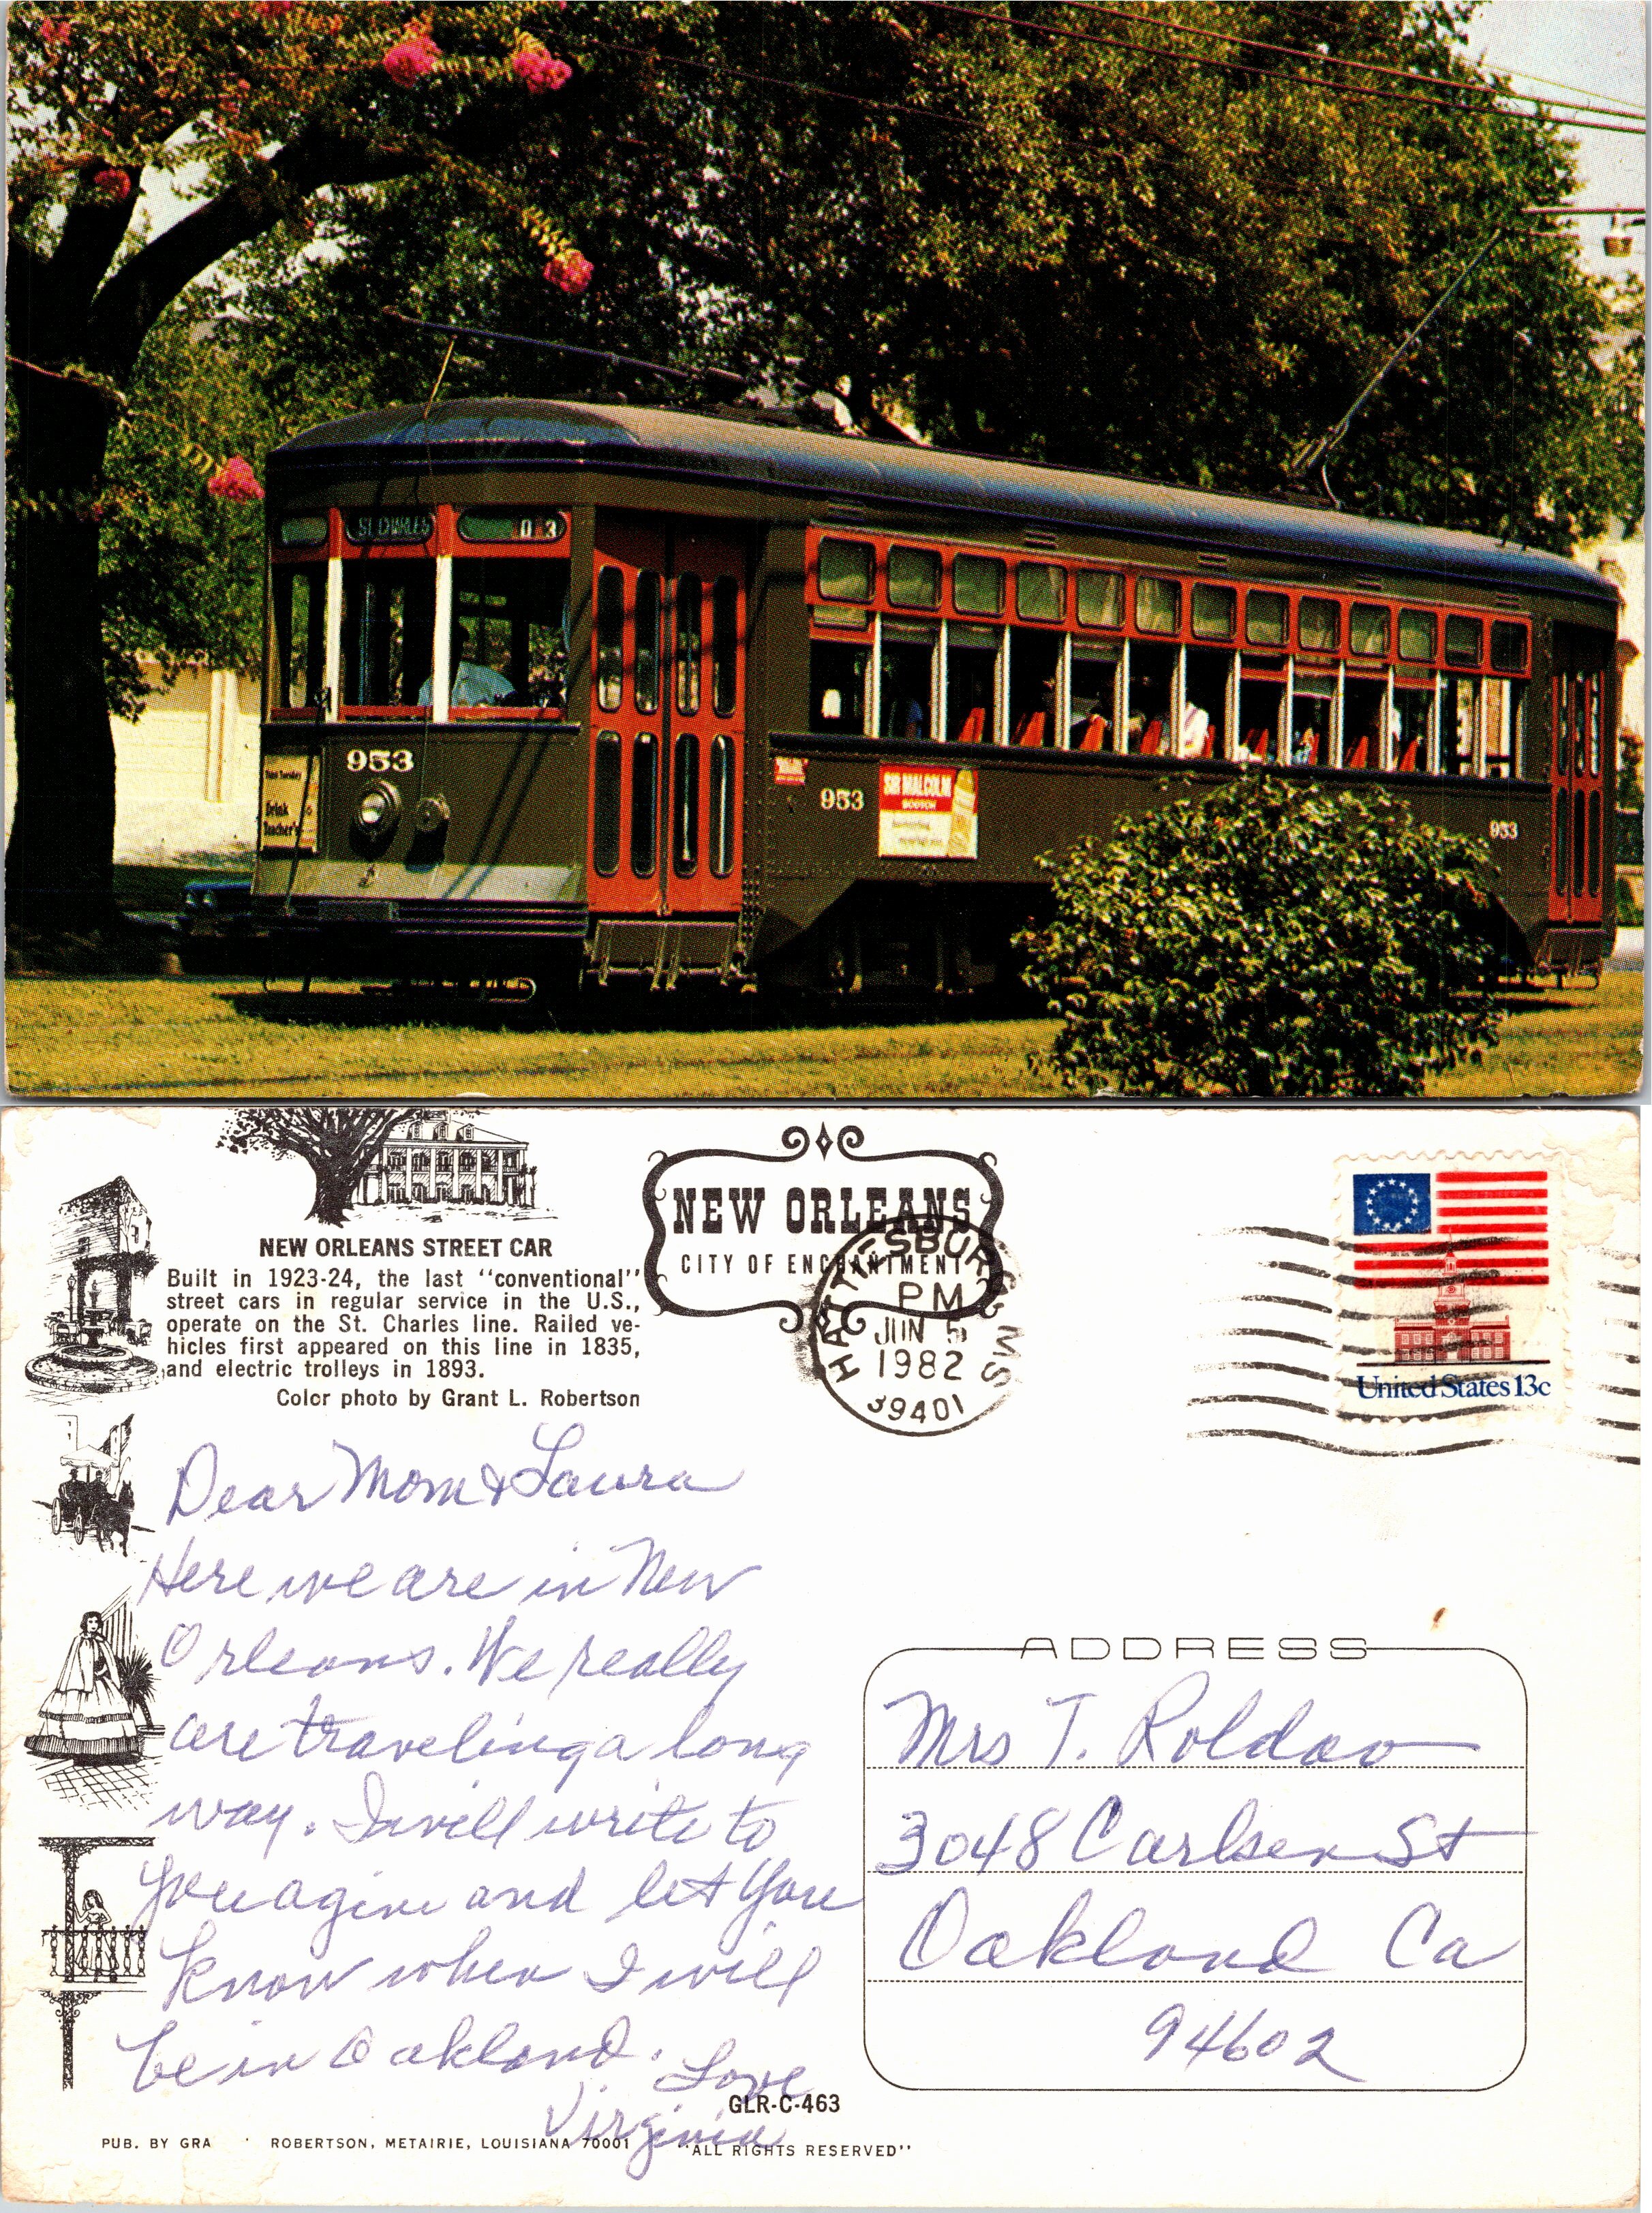 ST. CHARLES
0 3
953
Drink
Teacher's
953
SIR MALCOLM
SCOTCH
953
NEW ORLEANS STREET CAR
Built in 1923-24, the last "conventional"
street cars in regular service in the U.S.,
operate on the St. Charles line. Railed ve-
hicles first appeared on this line in 1835,
and electric trolleys in 1893.
Color photo by Grant L. Robertson
NEW ORLEANS
CITY OF ENCHANTMENT
HATTIESBURG MS
PM
JUN 5
1982
39401
United States 13c
Dear Mom & Laura
Here we are in New
Orleans. We really
are traveling a long
way. I will write to
you agin and let you
know when I will
be in Oakland.
Love
Virginia
ADDRESS
Mrs T. Roldao
3048 Carlsen St
Oakland Ca
94602
GLR-C-463
PUB. BY GRA ROBERTSON, METAIRIE, LOUISIANA 70001 "ALL RIGHTS RESERVED"